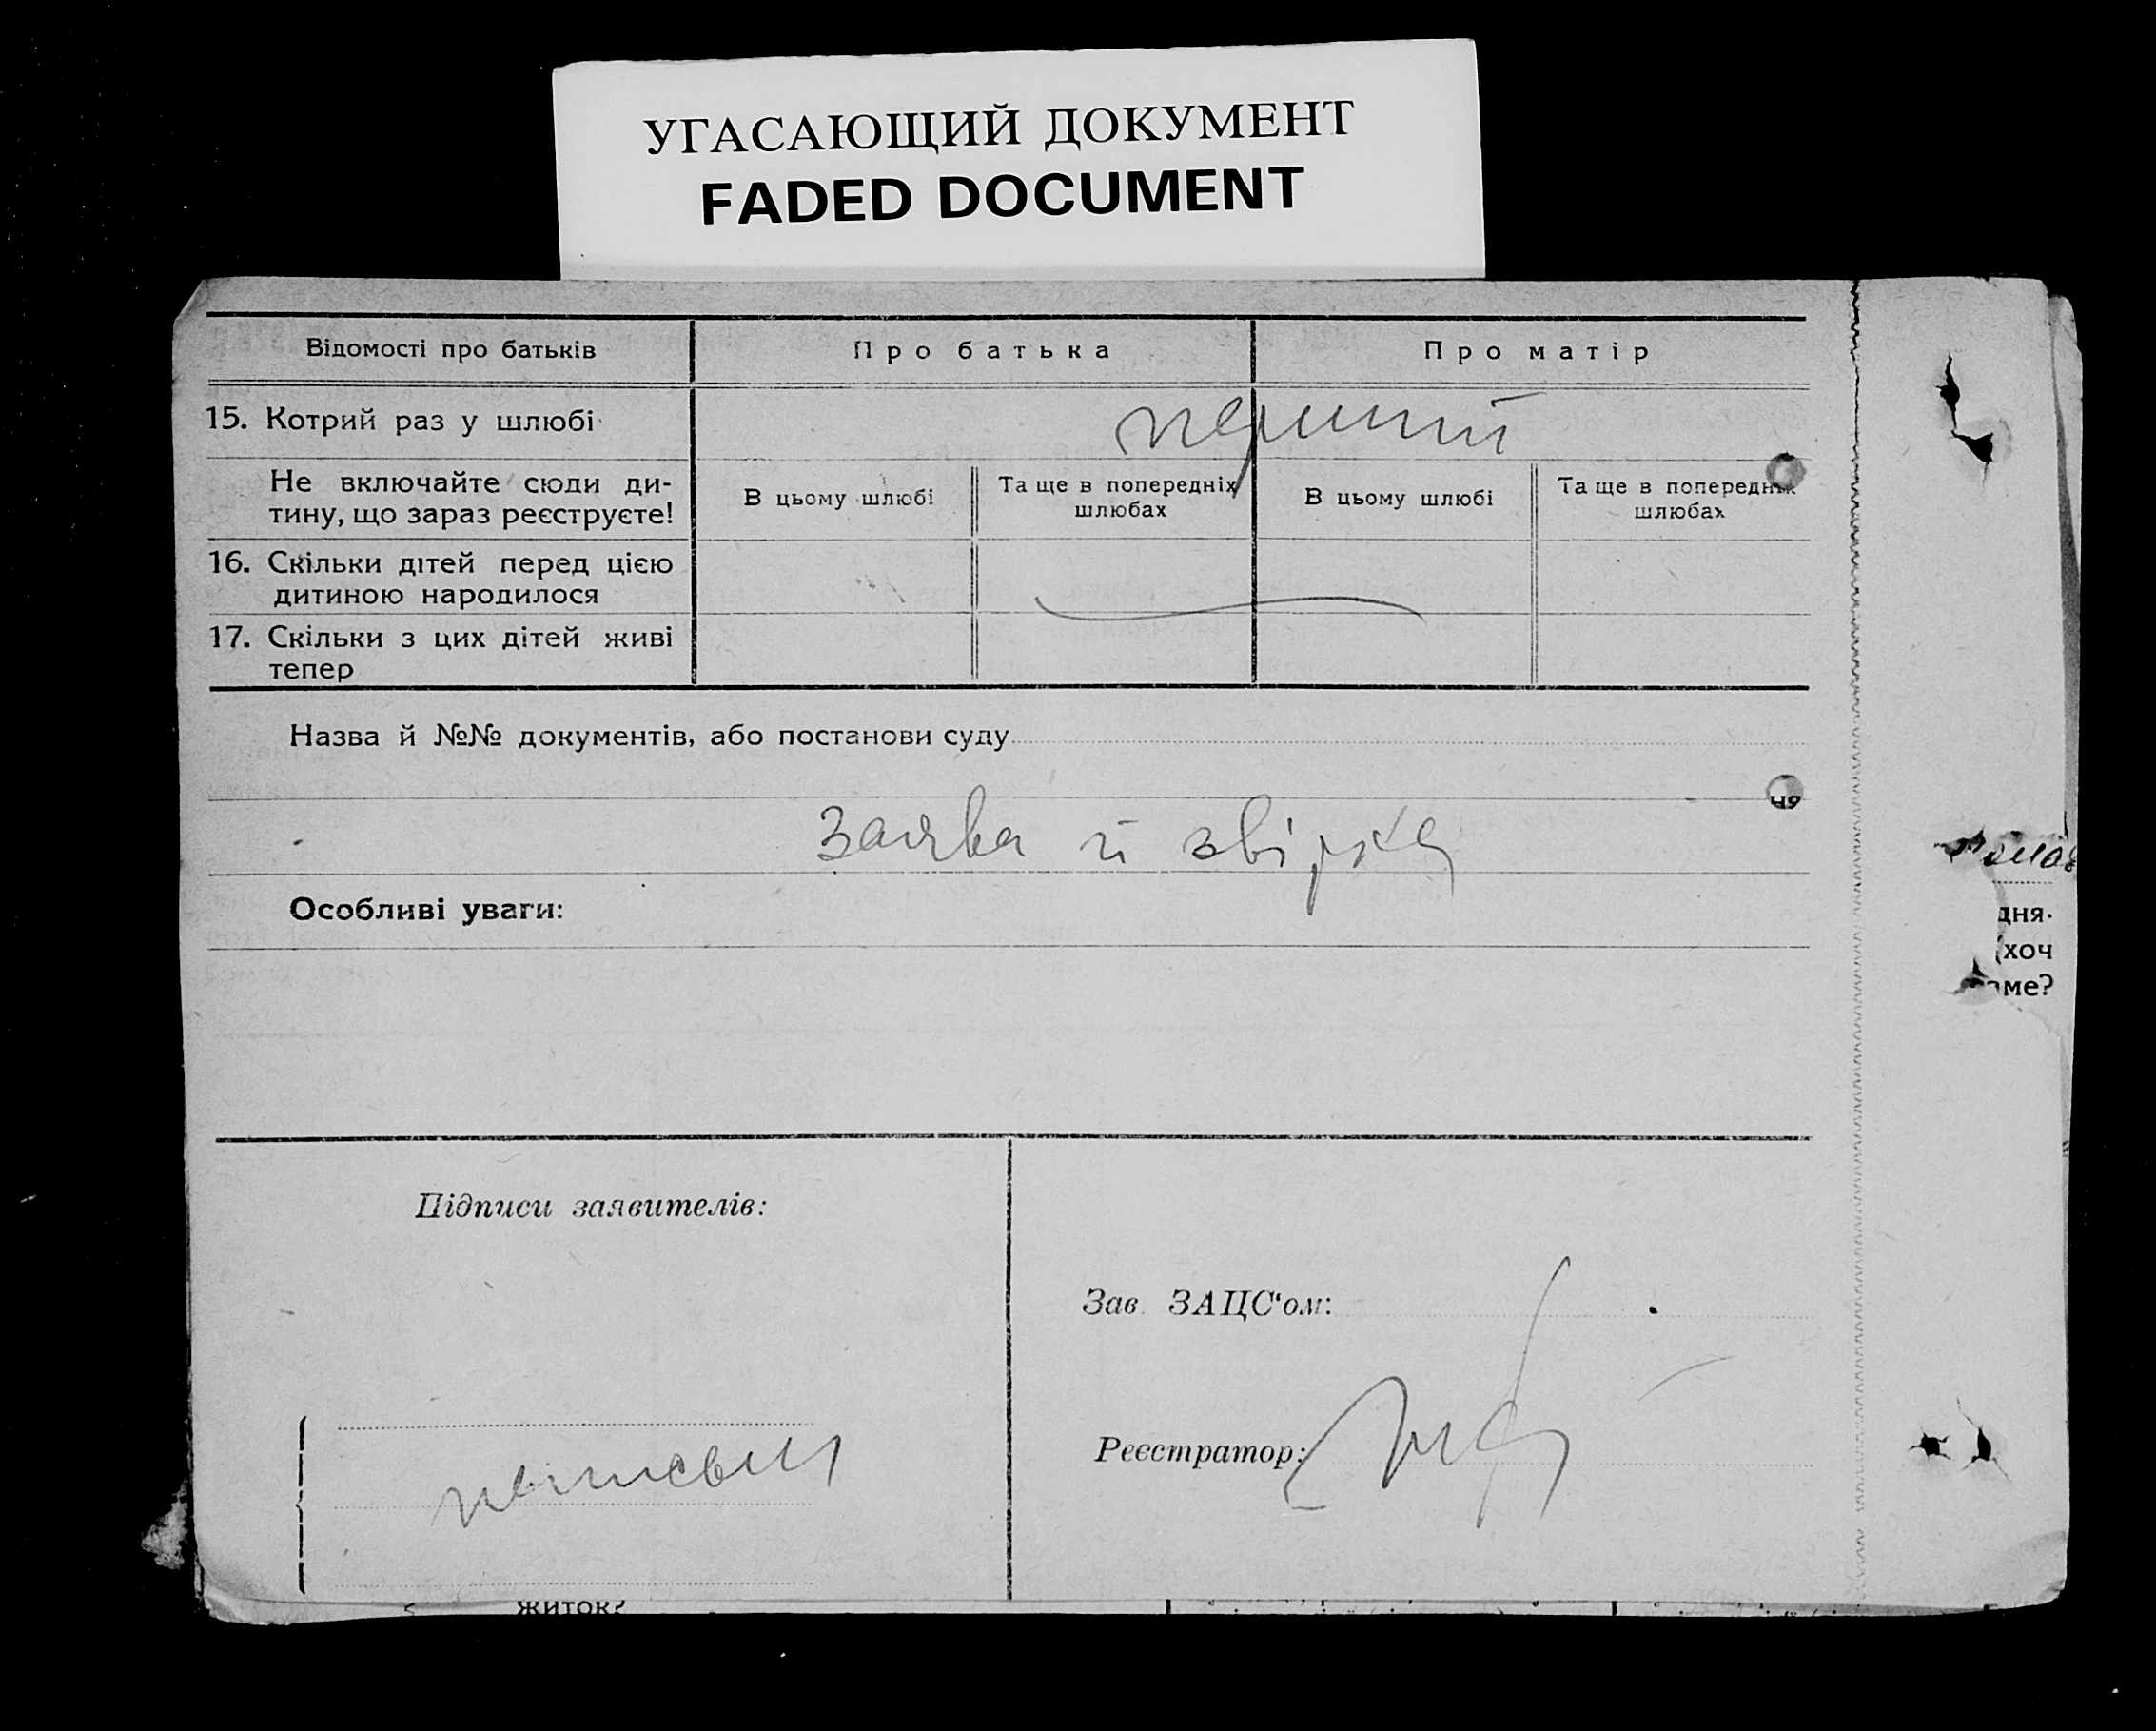 УГАСАЮЩИЙ ДОКУМЕНТ
FADED DOCUMENT
Відомості про батьків Про батька Про матір
15. Котрий раз у шлюбі перший
Не включайте сюди ди-
тину, що зараз реєструєте!
В цьому шлюбі
Та ще в попередніх
шлюбах
В цьому шлюбі
Та ще в попередніх
шлюбах
16. Скільки дітей перед цією
дитиною народилося
17. Скільки з цих дітей живі
тепер
Назва й №№ документів, або постанови суду
ня
заява й звірка
Особливі уваги:
дня.
(хоч
аме?
Підписи заявителів:
Зав. ЗАЦС‘ом:
Реєстратор:
житок?